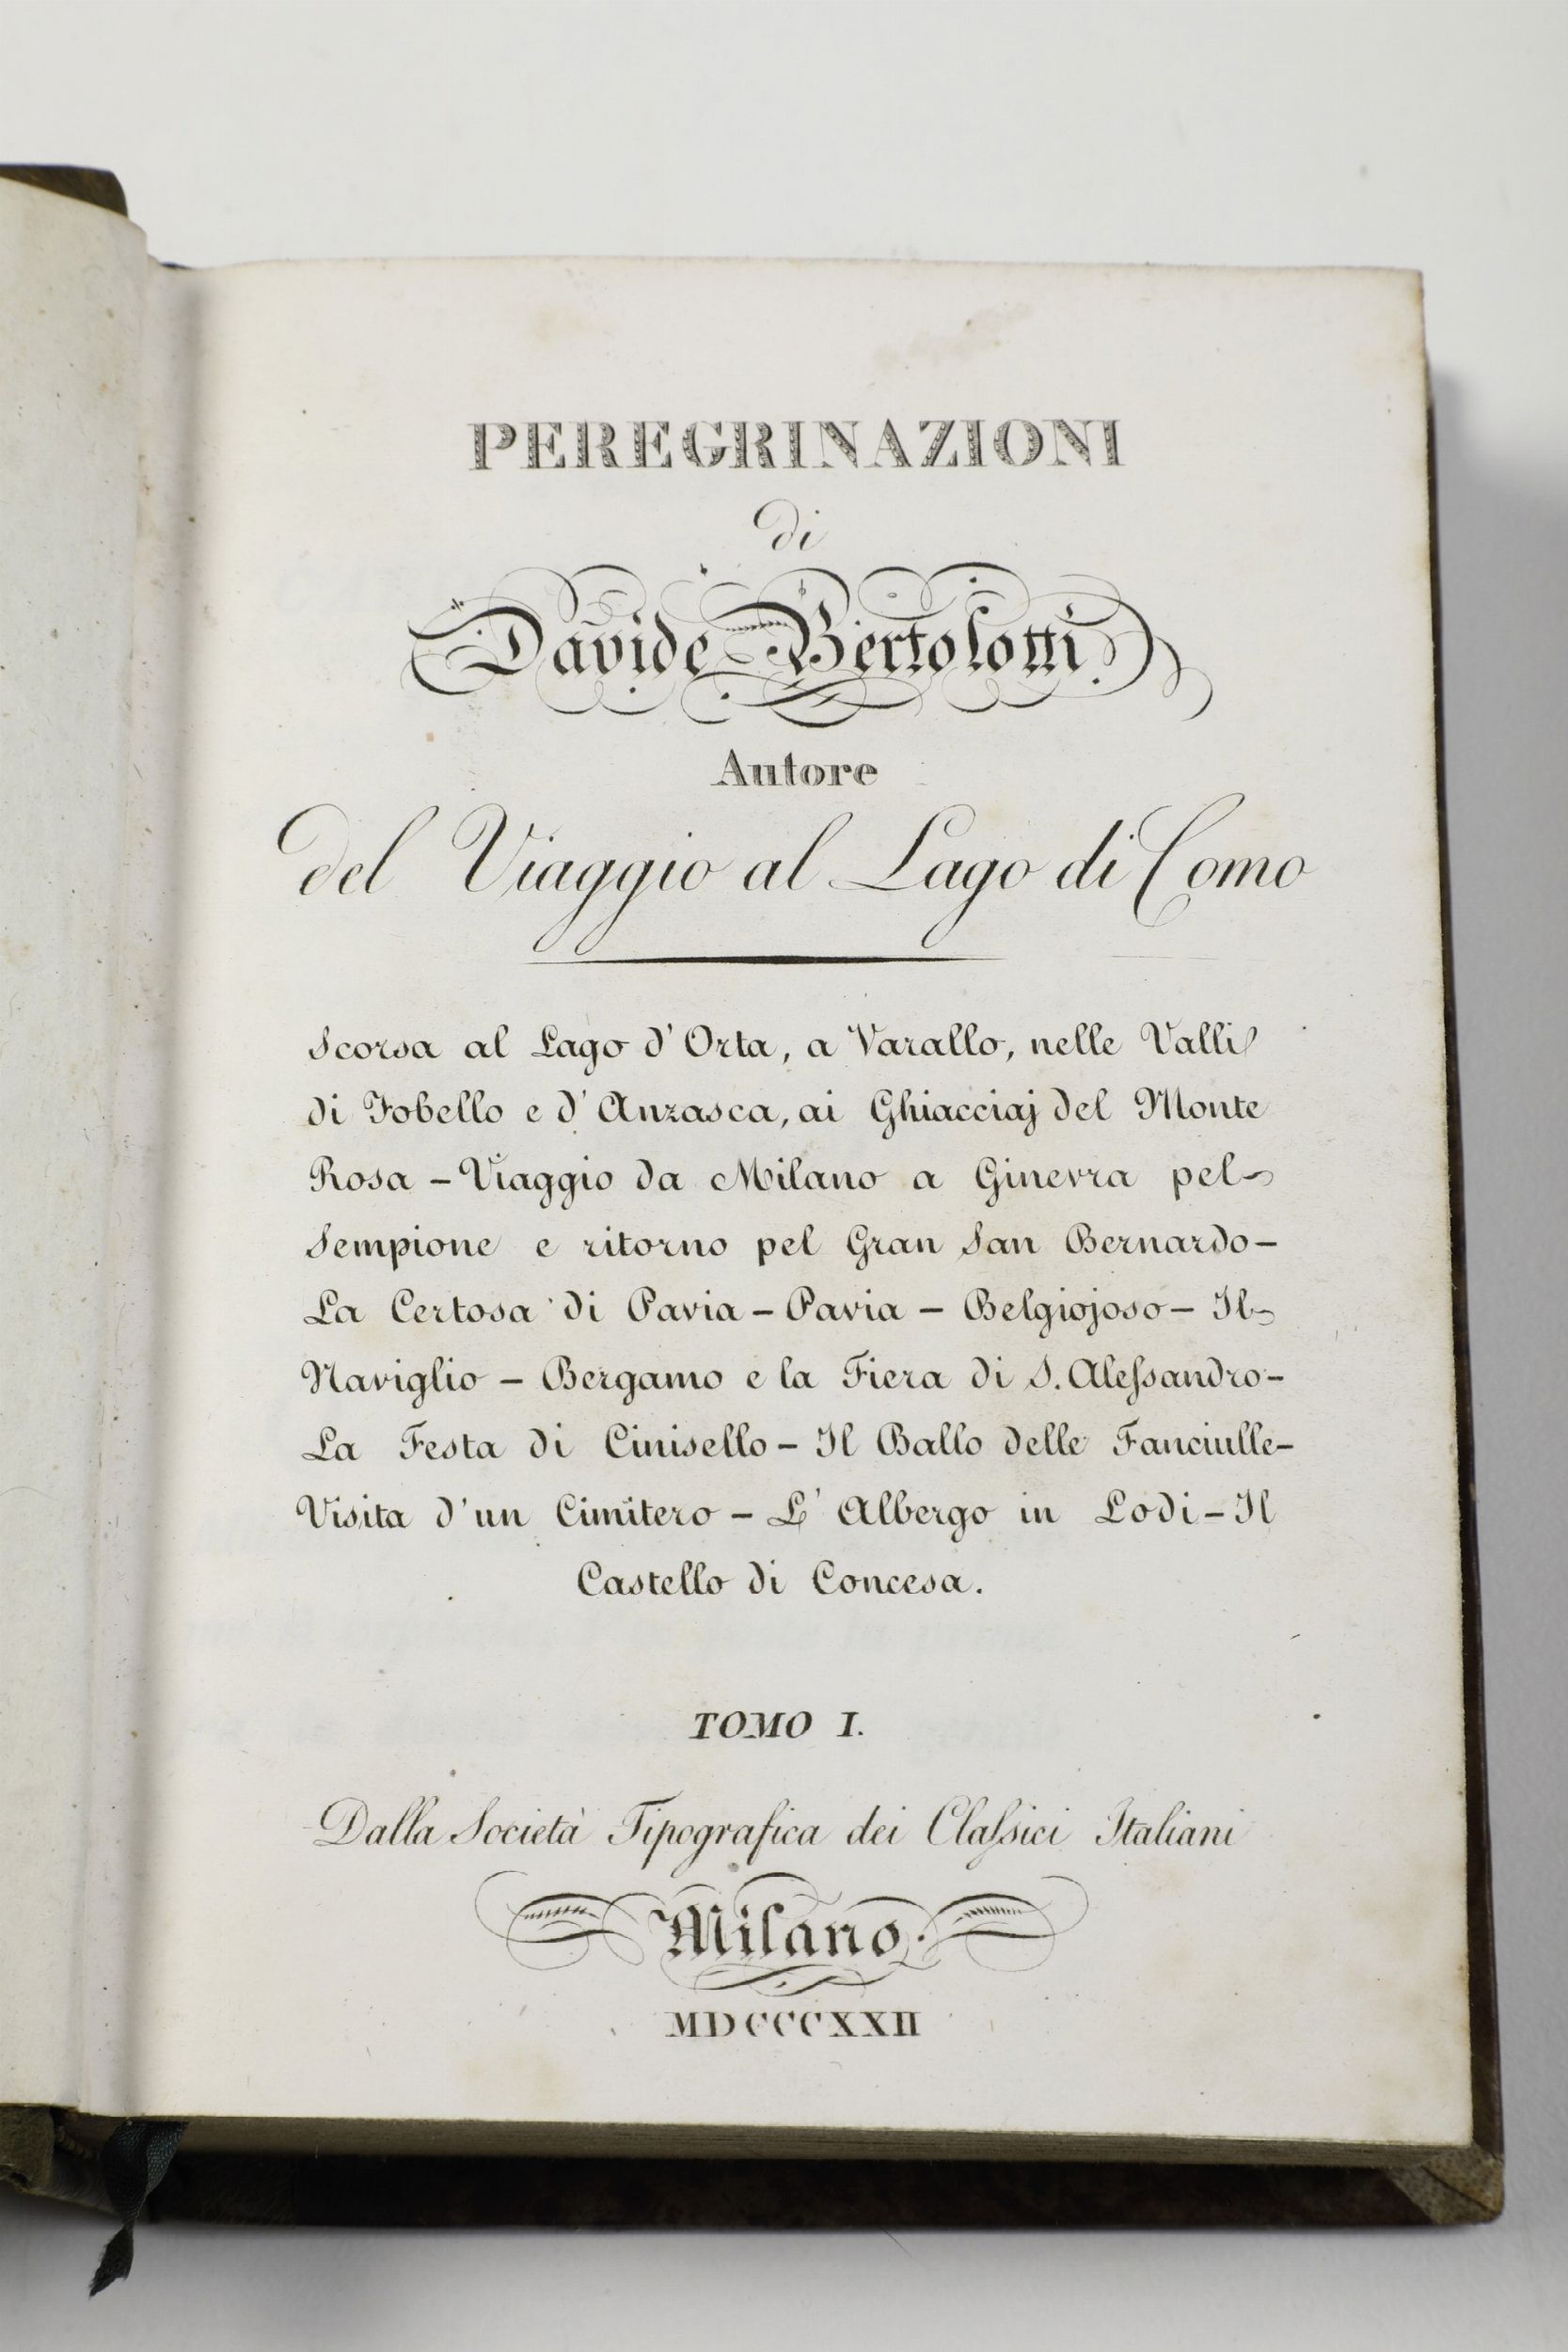 PEREGRINAZIONI
di
Davide Bertolotti
Autore
del Viaggio al Lago di Como
Scorsa al Lago d'Orta, a Varallo, nelle Valli
di Fobello e d'Anzasca, ai Ghiacciaj del Monte
Rosa – Viaggio da Milano a Ginevra pel
Sempione e ritorno pel Gran San Bernardo –
La Certosa di Pavia – Pavia – Belgiojoso – Il
Naviglio – Bergamo e la Fiera di S. Aleſsandro –
La Festa di Cinisello – Il Ballo delle Fanciulle –
Visita d'un Cimitero – L'Albergo in Lodi – Il
Castello di Concesa.
TOMO I.
Dalla Società Tipografica dei Claſsici Italiani
Milano.
MDCCCXXII